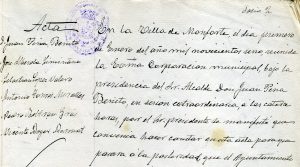 Folio 2
Acta
D Juan Pina Benito
José
Sebastian Pérez Valero
Antonio
Pedro Beltran
Vicente
En la Villa de Monforte, el dia primero
de Enero del año mil novecientos seis reunida
la Exma Corporacion municipal, bajo la
presidencia del Sr. Alcalde Don Juan Pina
Benito, en sesion extraordinaria, a las catorce
horas, por el Sr. presidente se manifesto que
convenia hacer constar en esta acta para que
para a la posteridad, que el Ayuntamiento